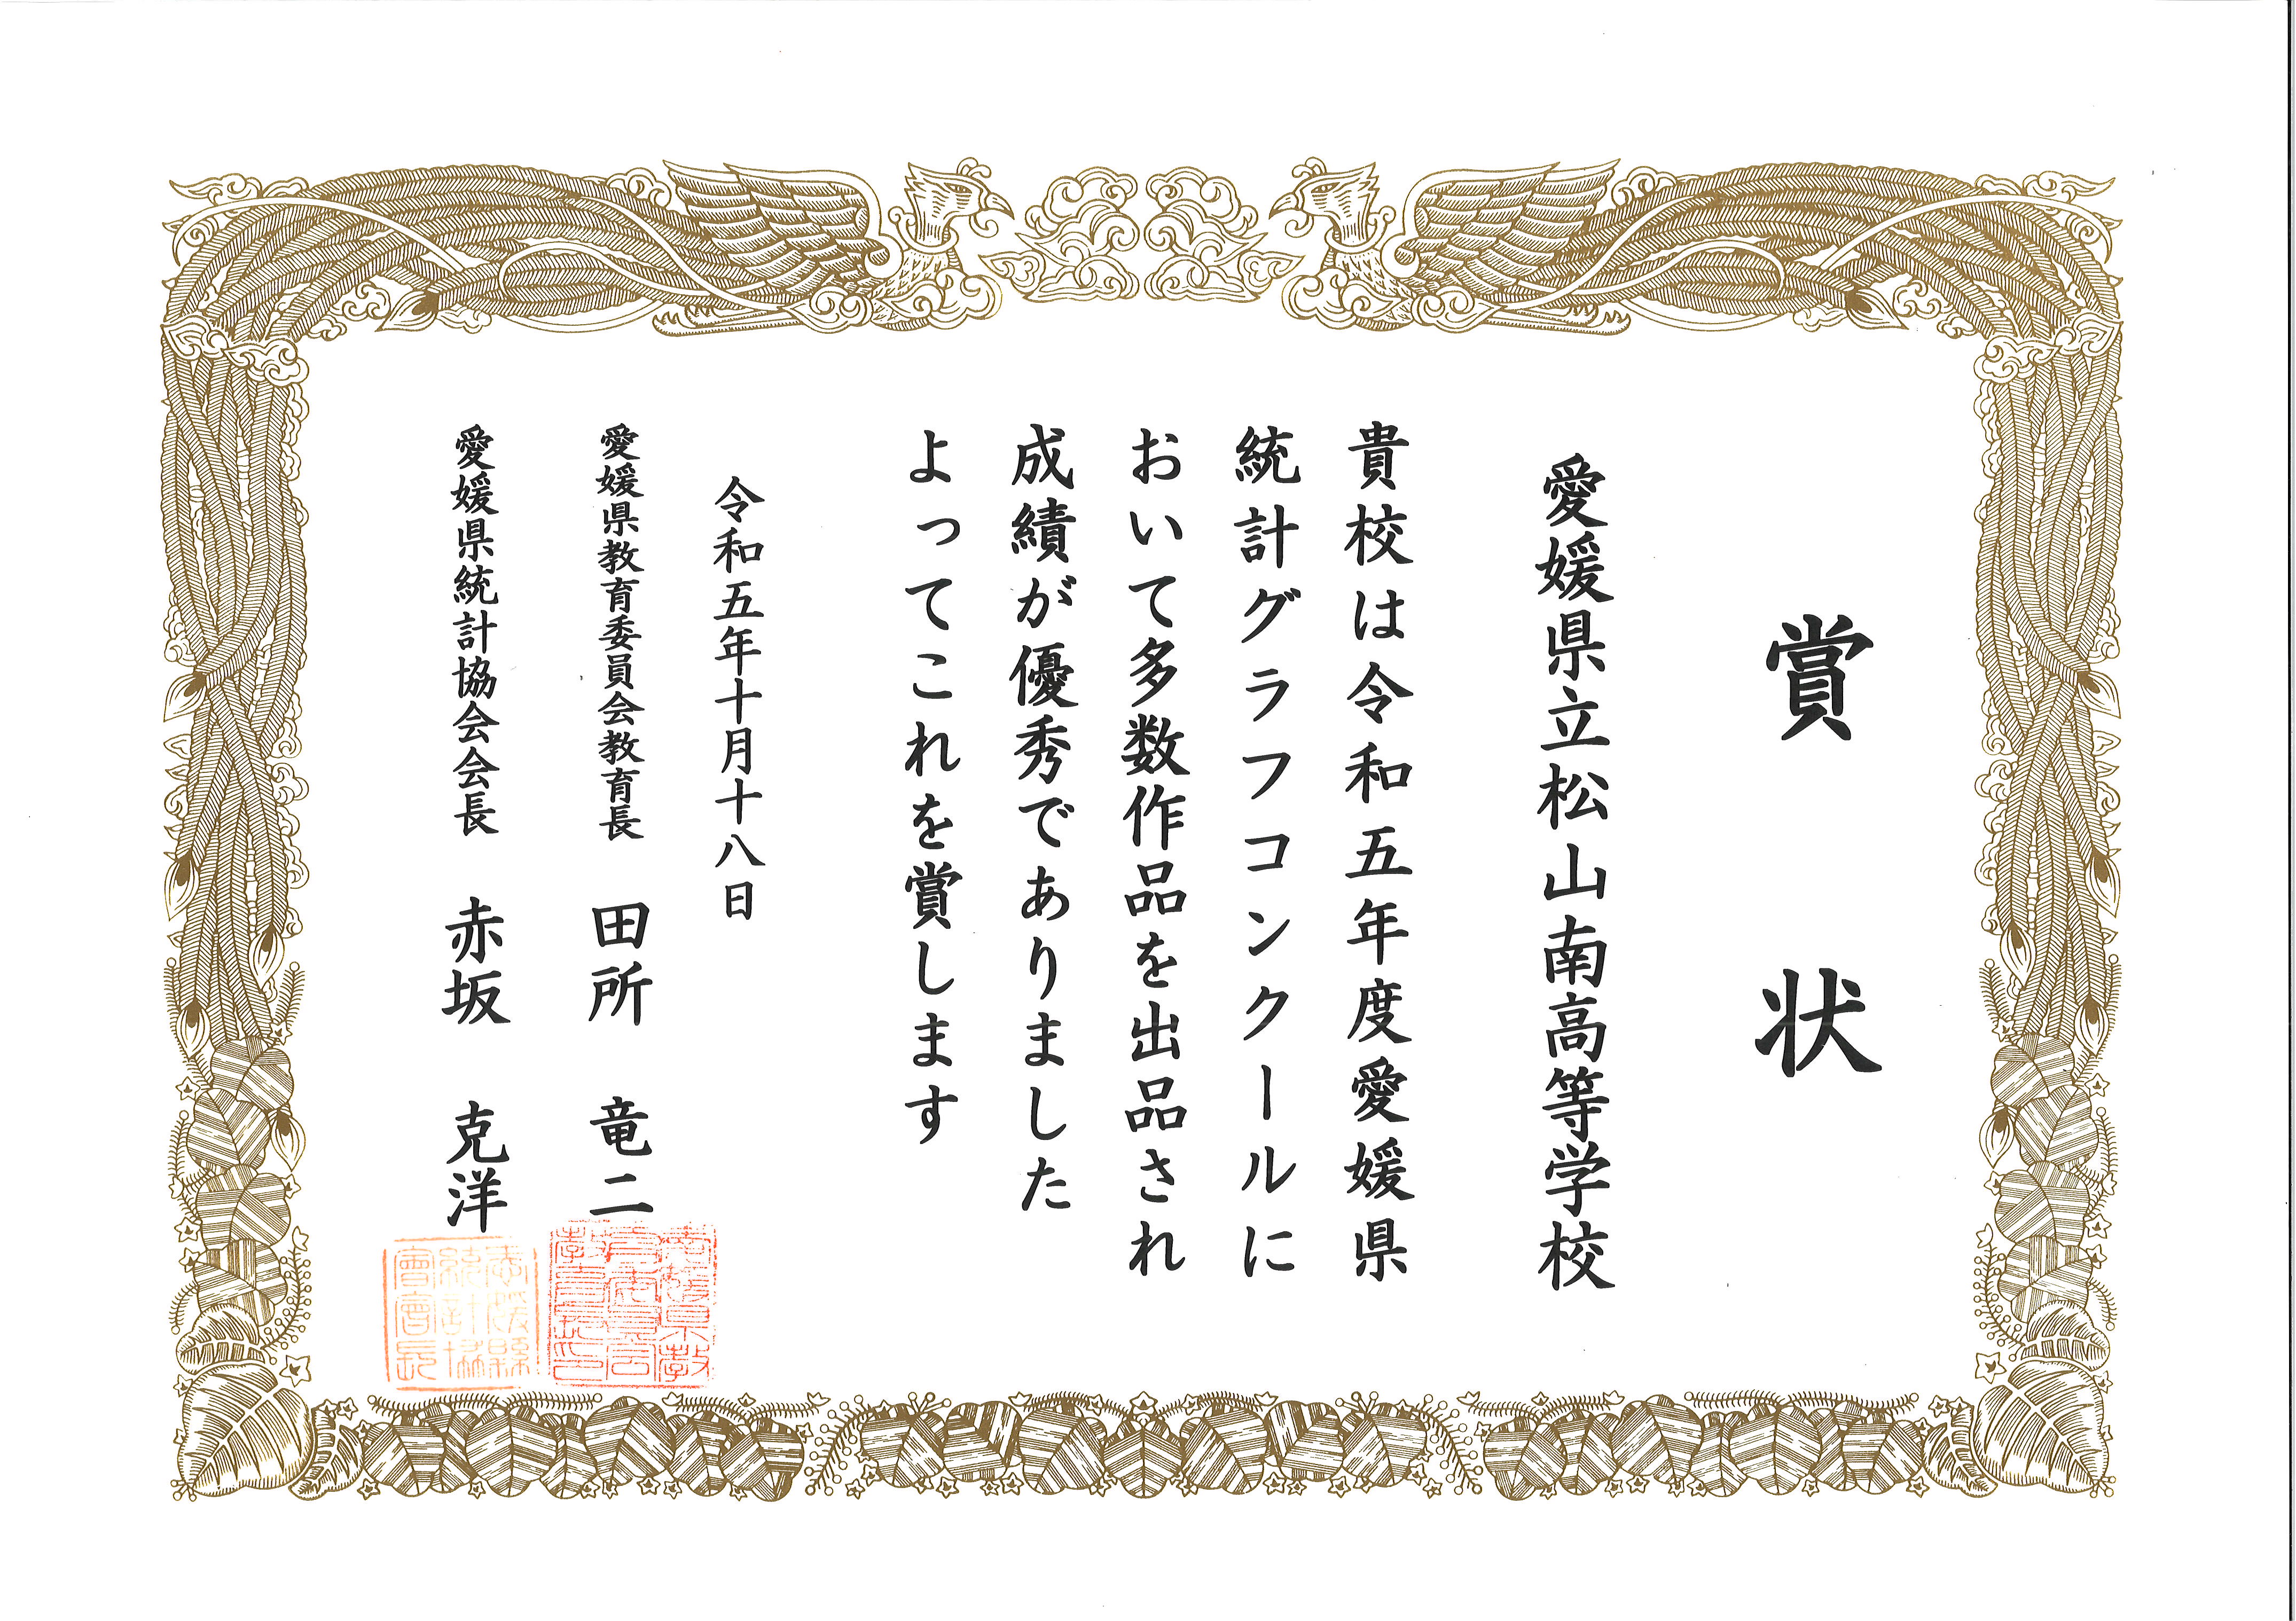 賞状
愛媛県立松山南高等学校
貴校は令和五年度愛媛県
統計グラフコンクールに
おいて多数作品を出品され
成績が優秀でありました
よってこれを賞します
令和五年十月十八日
愛媛県教育委員会教育長 田所 竜二
愛媛県統計協会会長 赤坂 克洋
愛媛縣統計協會會長